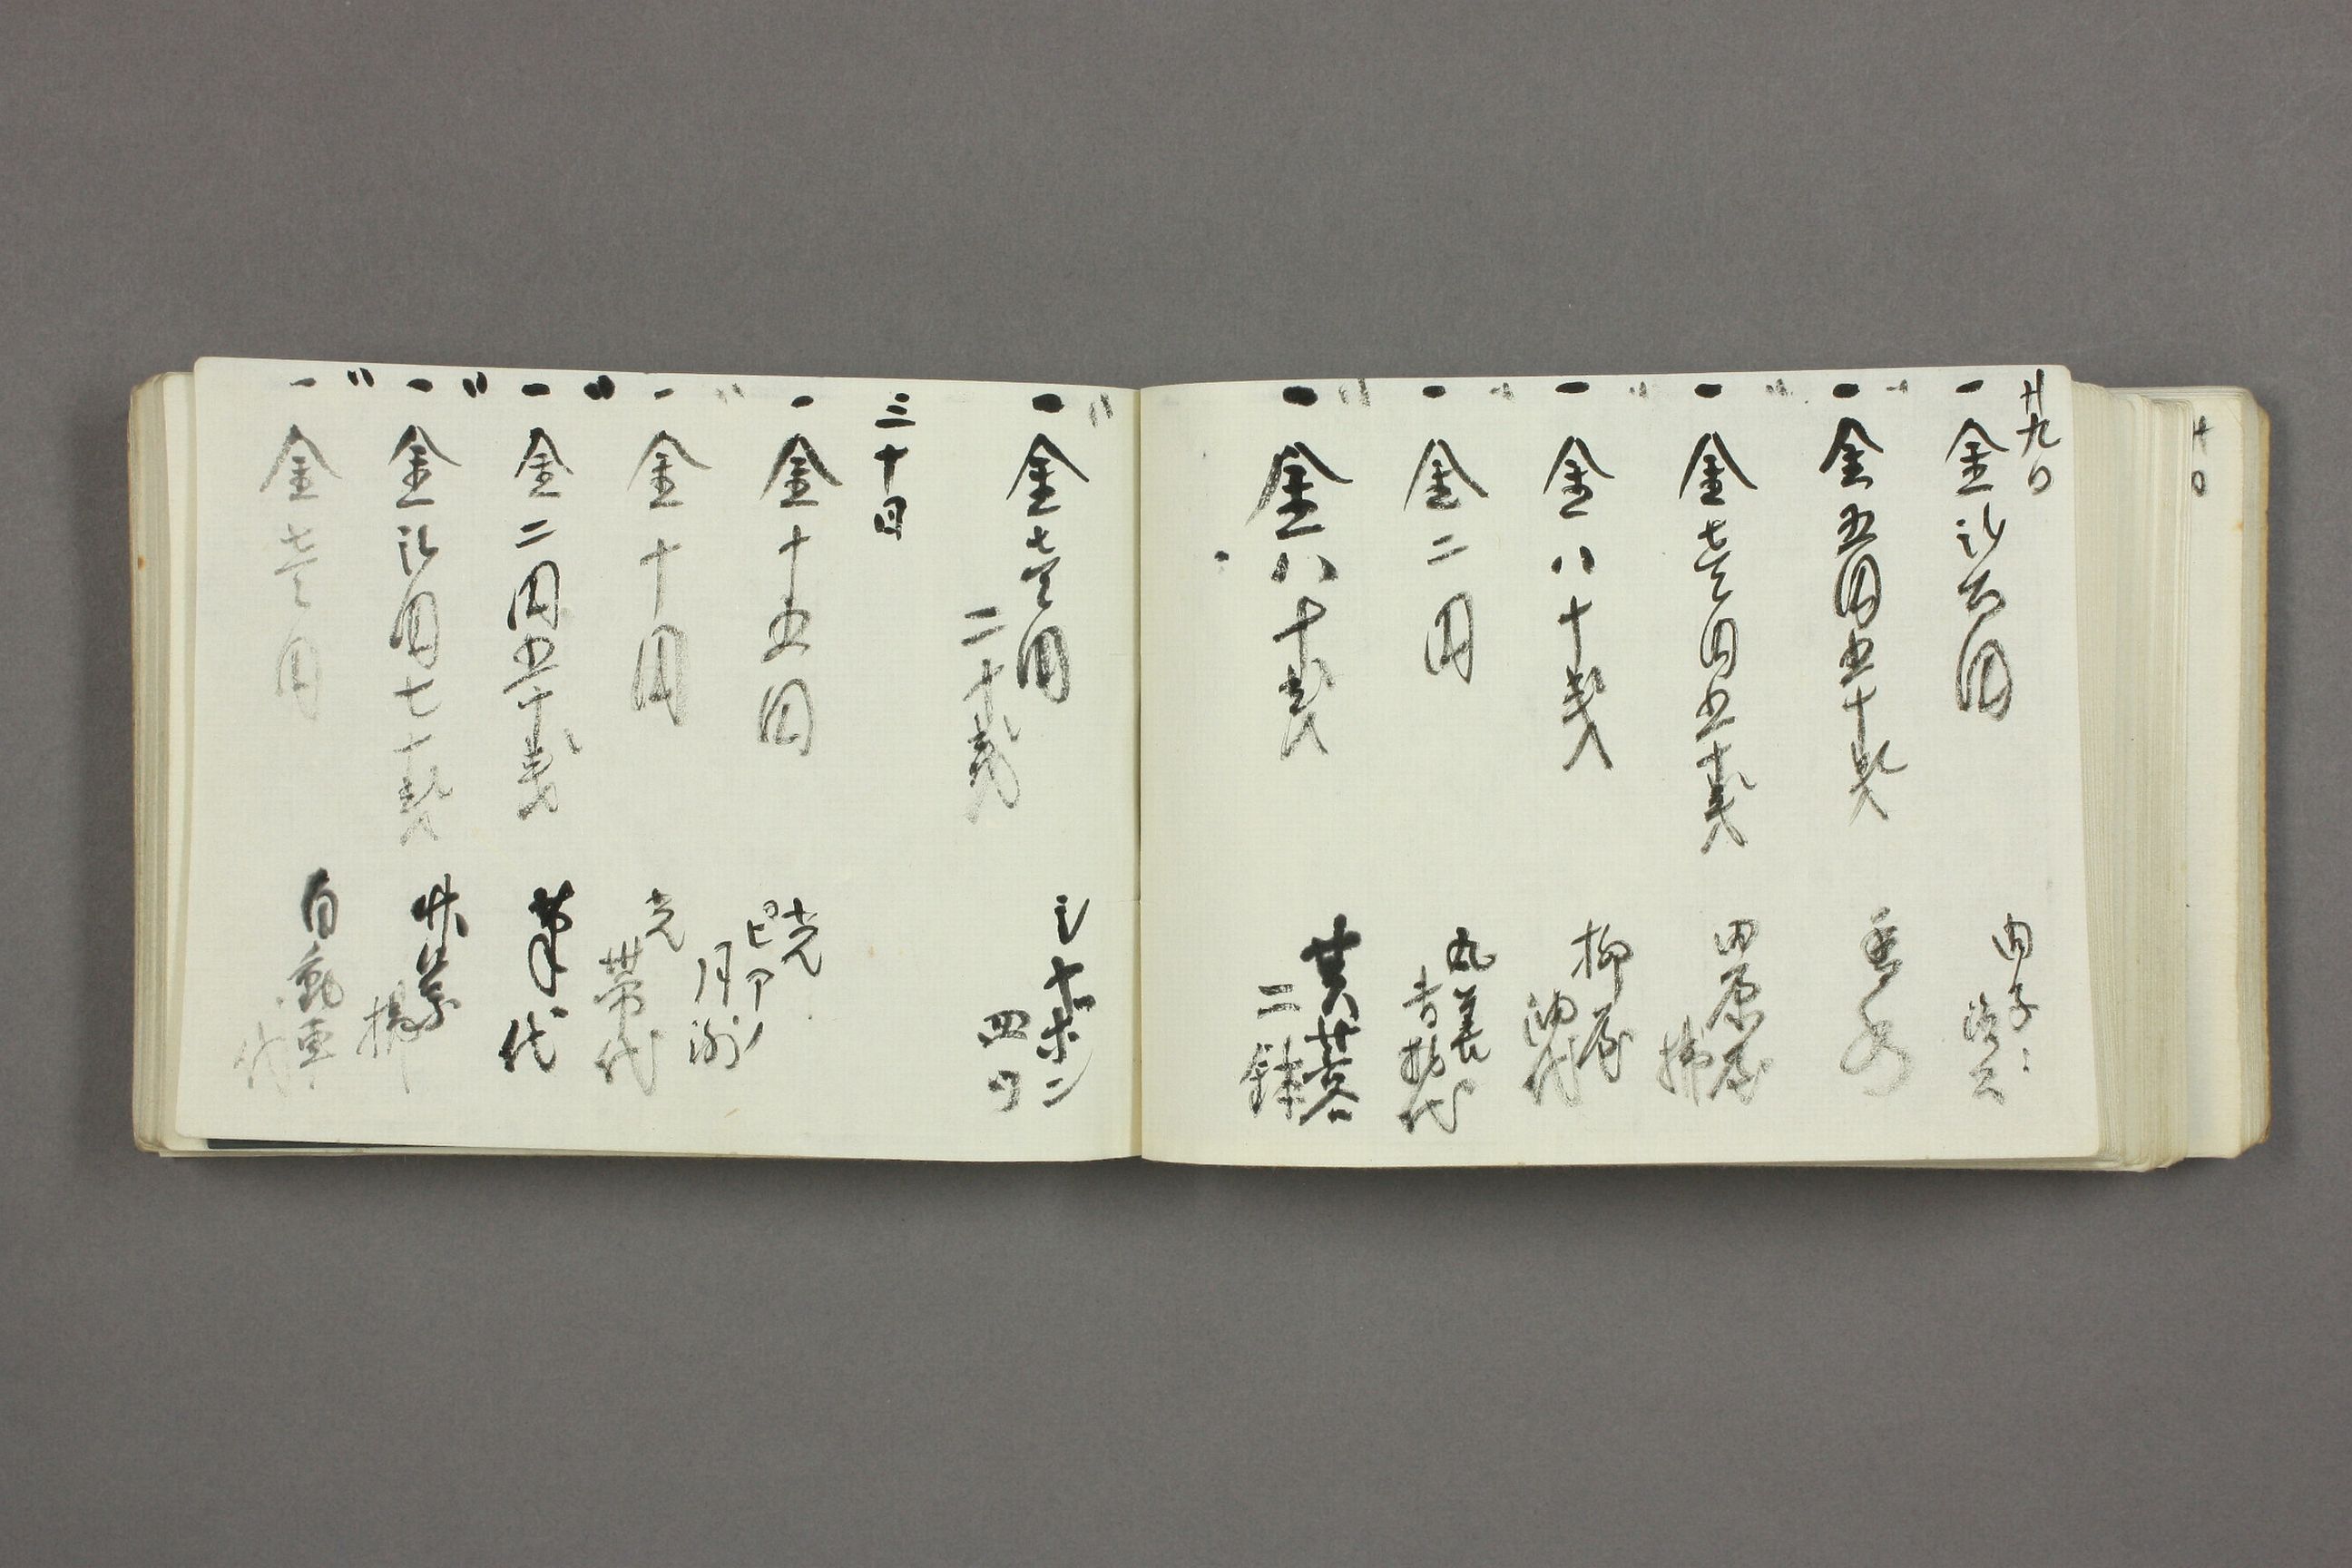 廿九日
一金弐百円 内子
一金五円五十銭 香水
〃一金壱円五十銭 田原屋 拂
〃一金八十銭 柳屋 油代
〃一金二円 丸善 書籍代
〃一金八十銭 芙蓉 二鉢
〃一金壱円二十銭 シャボン 四ツ
三十日
一金十五円 光 ピアノ 月謝
〃一金十円 光 帯代
〃一金二円五十銭 筆代
〃一金弐円七十銭 拂
〃一金壱円 自動車代
十日